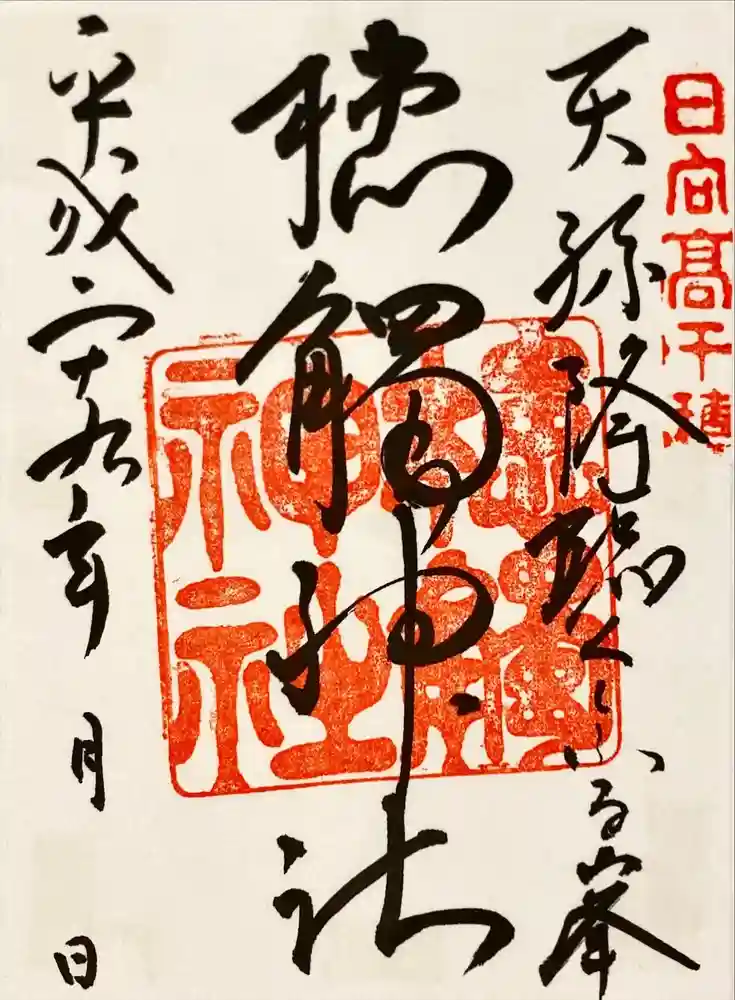 日向高千穂
天孫降臨くしふる峯
穂觸神社
穂觸神社
平成二十九年 月 日